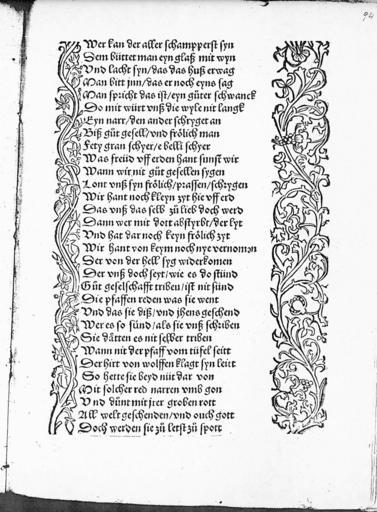 94
Wer kan der aller schampperst syn
Dem büttet man eyn glaß mit wyn
Vnd lacht syn/das das huß erwag
Man bitt jnn/das er noch eyns sag
Man spricht das ist/eyn gůter schwanck
Do mit würt vnß die wyle nit langk
Eyn narr/den ander schryget an
Biß gůt gesell/vnd frölich man
Fety gran schyer/e belli schyer
Was freüd vff erden hant sunst wir
Wann wir nit gůt gesellen sygen
Lont vnß syn frölich/prassen/schlygen
Wir hant noch kleyn zyt hie vff erd
Das vnß das selb zů lieb doch werd
Dann wer mit dott abstyrbt/der lyt
Vnd hat dar noch keyn frölich zyt
Wir hant von keym noch nye vernomen
Der von der hell syg widerkomen
Der vnß doch seyt/wie es do stünd
Gůt geselschafft triben/ist nit sünd
Die pfaffen reden was sie went
Vnd das sie diß/vnd jhens geschend
Wer es so sünd/als sie vnß schriben
Sie dätten es nit selber triben
Wann nit der pfaff vom tüfel seitt
Der hirt von wolffen klagt syn leitt
So hette sie beyd nüt dar von
Mit solcher red narren vmb gon
Vnd dünt mit jrer groben rott
All welt geschenden/vnd ouch gott
Doch werden sie zů letst zů spott